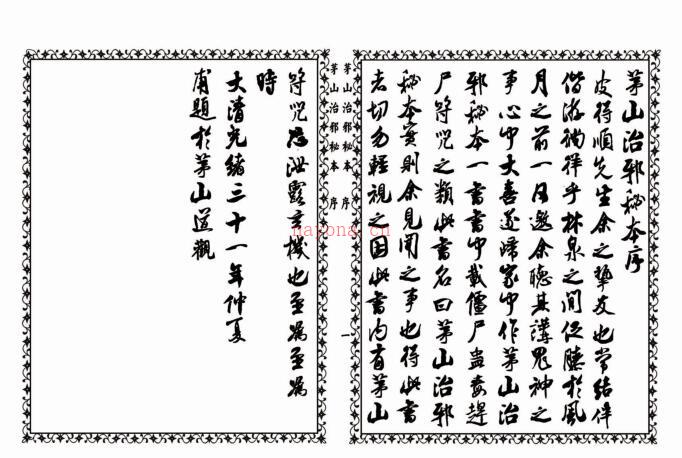 茅山治邪秘本序
皮得順先生余之摯友也常结伴
偕游徜徉乎林泉之间促膝於風
月之前一日邀余聽其講鬼神之
事心中大喜遂歸家中作茅山治
邪秘本一書書中載僵尸蛊毒趕
尸符咒之類此書名曰茅山治邪
秘本實則余見聞之事也得此書
者切勿輕視之因此書内有茅山
茅山治邪秘本 序
一
茅山治邪秘本 序
符咒恐泄露玄機也至為至為
時
大清光緒三十一年仲夏
甫題於茅山道觀
nayona.cn